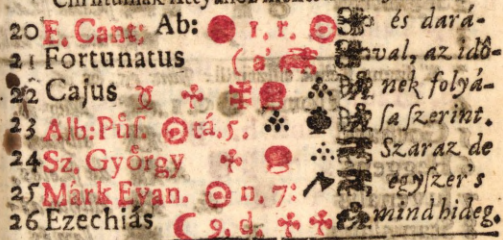 20 E. Cant; Ab: 1. r. és dará-
21 Fortunatus (a' val, az idô-
22 Cajus ♉ nek folyá-
23 Alb: Püs. ☉ tá. 5. sa szerint.
24 Sz. György Szaraz de
25 Márk Evan. ☉ n. 7: egyszer's
26 Ezechiás ☾ 9. d. mind hideg.